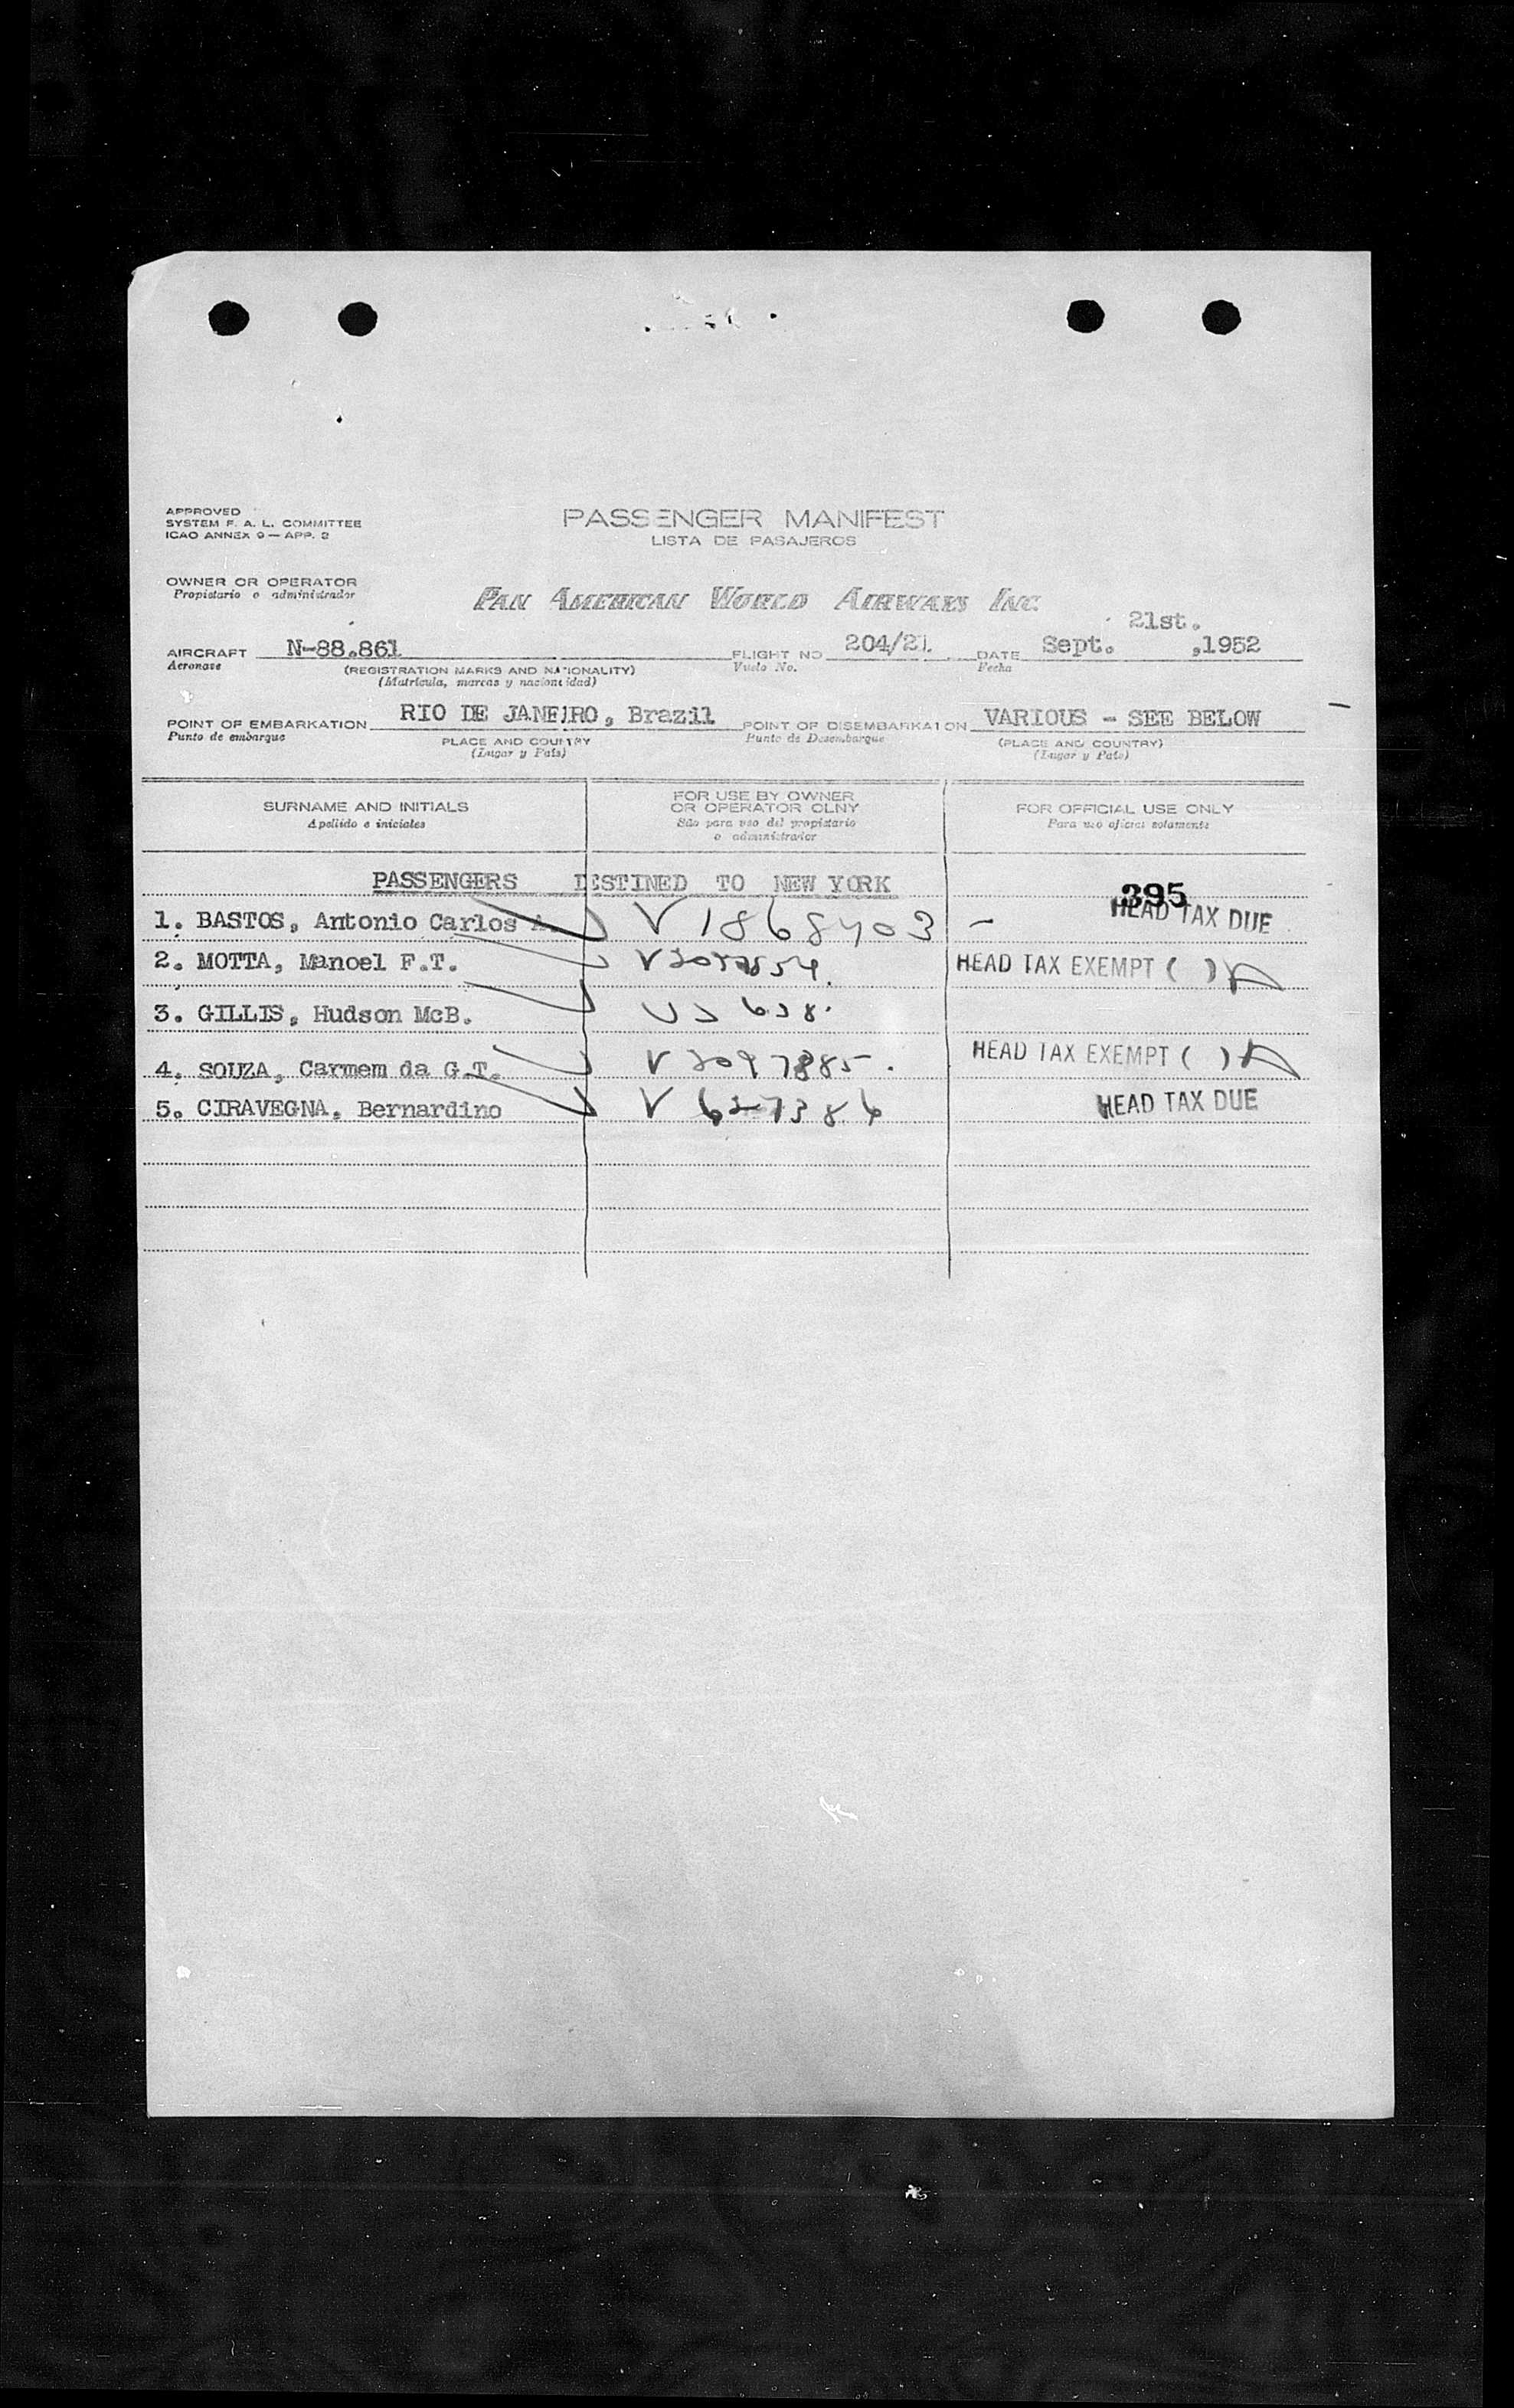 APPROVED
SYSTEM F. A. L. COMMITTEE
ICAO ANNEX 9 — APP. 2
PASSENGER MANIFEST
LISTA DE PASAJEROS
OWNER OR OPERATOR
Propietario o administrador
PAN AMERICAN WORLD AIRWAYS INC
21st.
AIRCRAFT N-88.861 FLIGHT NO 204/21. DATE Sept. ,1952
Aeronave (REGISTRATION MARKS AND NATIONALITY) Vuelo No. Fecha
(Matrícula, marcas y nacionalidad)
POINT OF EMBARKATION RIO DE JANEIRO, Brazil POINT OF DISEMBARKATION VARIOUS - SEE BELOW
Punto de embarque PLACE AND COUNTRY Punto de Desembarque (PLACE AND COUNTRY)
(Lugar y País) (Lugar y País)
SURNAME AND INITIALS
Apellido e iniciales
FOR USE BY OWNER
OR OPERATOR OLNY
São para uso del propietario
o administrador
FOR OFFICIAL USE ONLY
Para uso oficial solamente
PASSENGERS DESTINED TO NEW YORK 395
1. BASTOS, Antonio Carlos A. V 1868403 - HEAD TAX DUE
2. MOTTA, Manoel F.T. HEAD TAX EXEMPT ( )
3. GILLIS, Hudson McB.
4. SOUZA, Carmem da G.T. V 2097885. HEAD TAX EXEMPT ( )
5. CIRAVEGNA, Bernardino V 627386 HEAD TAX DUE